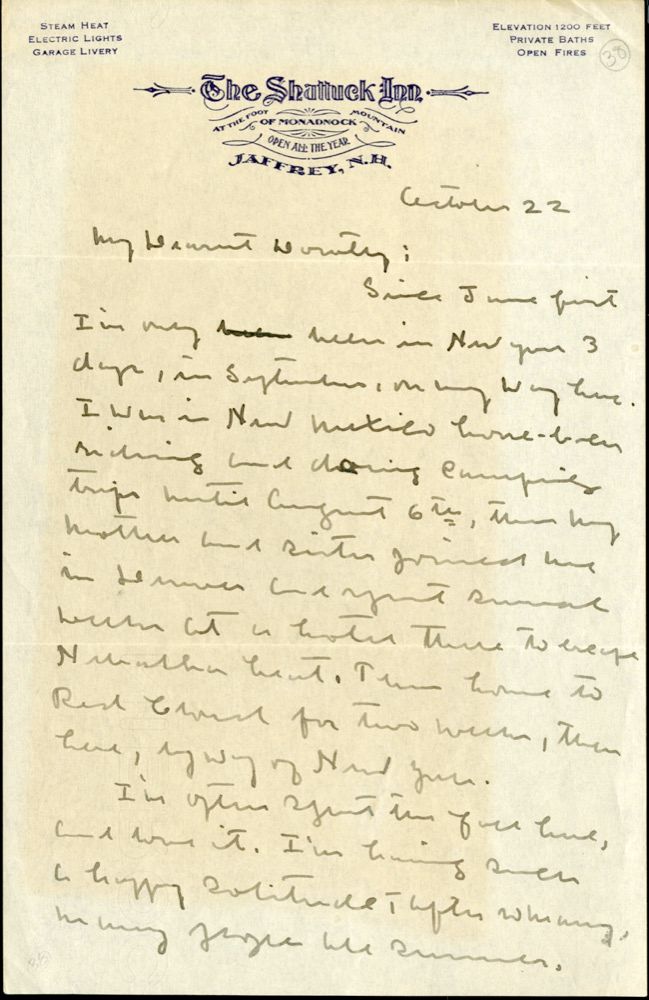 STEAM HEAT
ELECTRIC LIGHTS
GARAGE LIVERY
ELEVATION 1200 FEET
PRIVATE BATHS
OPEN FIRES
38
The Shattuck Inn
AT THE FOOT OF MONADNOCK MOUNTAIN
OPEN ALL THE YEAR
JAFFREY, N.H.
October 22
My Dearest Dorothy:
Since June first
I've only been been in New York 3
days, in September, on my way here.
I was in New Mexico horse-back
riding and doing camping
trips until August 6th, then my
mother and sister joined me
in Denver and spent several
weeks at a hotel there to escape
Nebraska heat. Then home to
Red Cloud for two weeks, then
here, by way of New York.
I've often spent the fall here,
and love it. I'm having such
a happy solitude after seeing
so many people all summer.